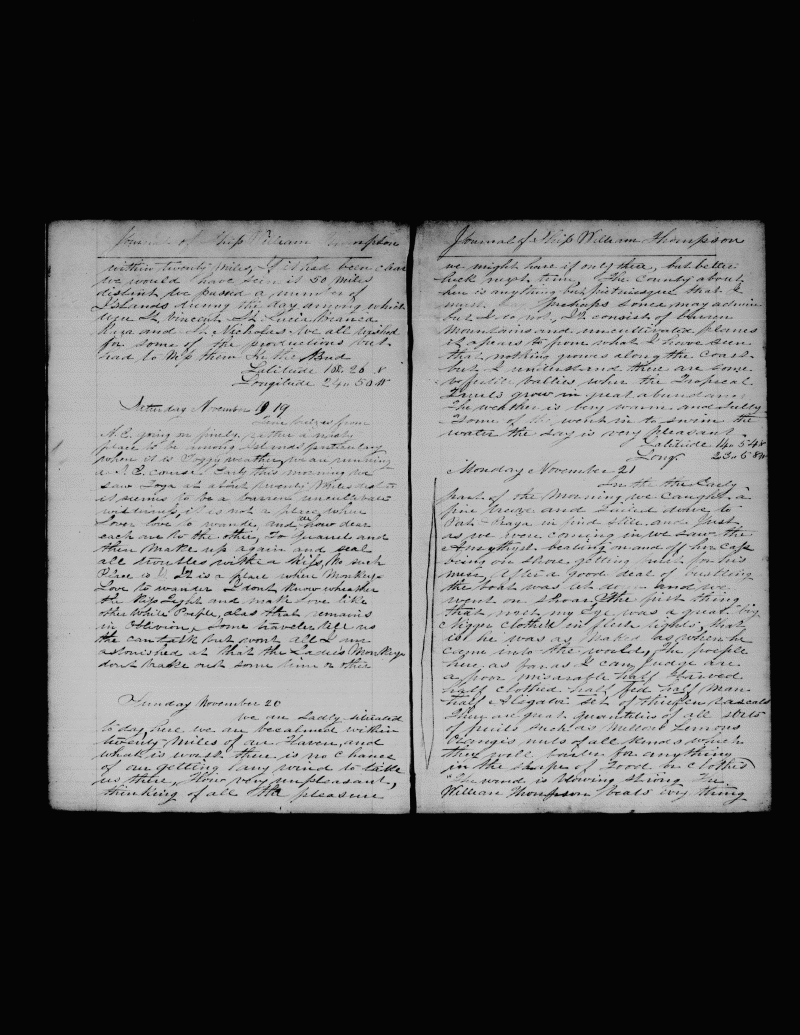 Journal of Ship William Thompson
within twenty Miles, If it had been clear
we would have seen it 50 miles
distant we passed a number of
Islands during the day among which
were St. Vincent St. Lucia
and St. Nicholas we all wished
for some of the productions but
had to
Latitude 26 N
Longitude 24 50 W
Saturday November 19
Fine breezes from
N.E. going on finely, rather a nasty
place to be among Islands particularly
when it is Foggy weather, we are running
a S.E. course. Early this morning we
saw at about twenty Miles dist
it seems to be a barren uncultivated
it is not a place when
Lover love to wander, and how dear
each are to the other, To Quarrel and
then Make up again and seal
all troubles with a kiss, No such
Place is it It is a place where Monkeys
Love to wander I dont know wheather
the Kiss Fight and make Love like
other White People, alas that remains
in Oblivion, Some traveler tell us
the can talk but wont all I am
astonished at that the Ladies Monkeys
dont brake out some time or other
Sunday November 20
We are Sadly situated
to day, here we are becalmed within
twenty Miles of our Haven, and
what is worst there is no chance
of our getting any wind to take
us there, How very unpleasant,
thinking of all the pleasure
Journal of Ship William Thompson
we might have if only there, but better
luck next time. The County about
here is anything but picturesque that I
must perhaps some may admire
but I do not, It consist of barren
Mountains and uncultivated plains
it apears to from what I have seen
that nothing grows along the coast
but I understand there are some
vallies when the Tropical
Fruits grow in great abundance
The weather is very warm and Sultry
Some of the went in to swim the
water the day is very pleasant
Latitude 14 54 N
Long 23 58 W
Monday November 21
In the the Early
part of the Morning we caught a
fine breeze and Sailed down to
Port Praya in find stile, and Just
as we were coming in we saw the
Amethyst, beating on and off her Capt
being on shore getting fruit for his
men, After a good deal of bustling
the boat was and we
went on shore, the first thing
that met my Eye was a great big
Nigger Clothed in flesh tights, that
is he was as Naked as when he
came into the world, The people
here as far as I can judge are
a poor misarable half starved
half clothed half fed half Man
half Aligator set of thieven rascals
There are great quantities of all sorts
of fruits such as Mellons Lemons
Orangis nuts of all kinds which
they will barter for anything
in the shape of Food or clothes
The wind is blowing strong The
William Thompson beats every thing